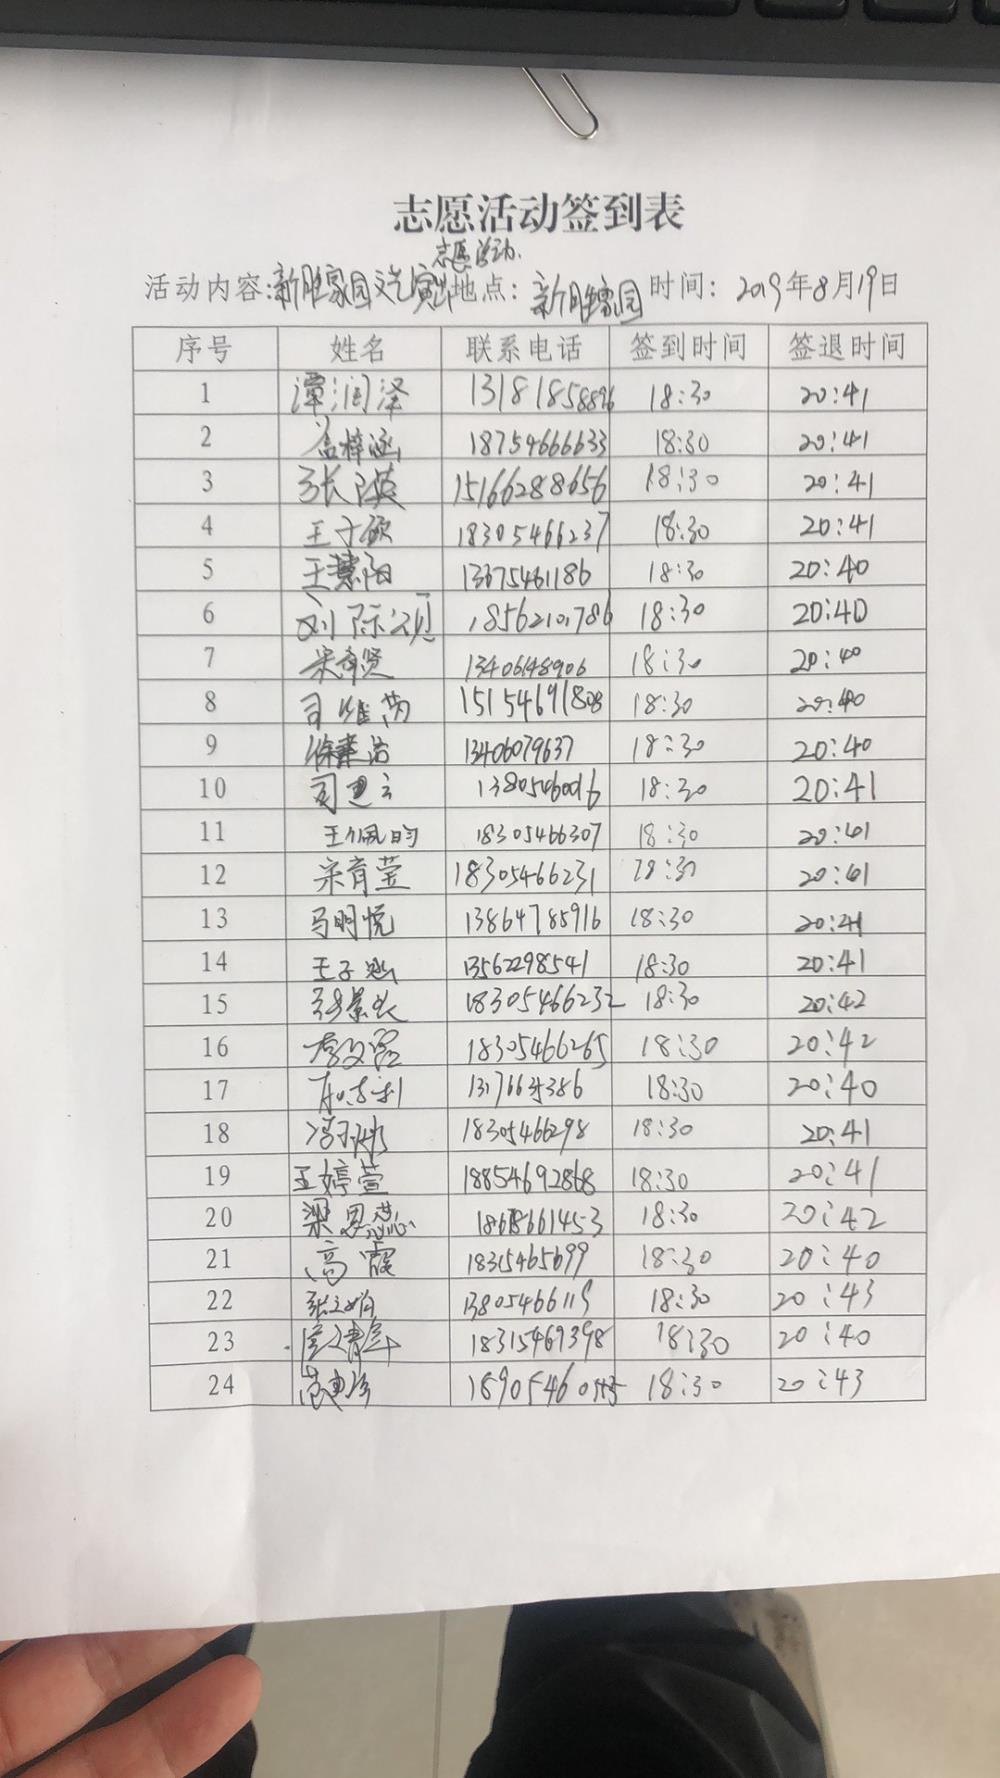 志愿活动签到表
志愿活动.
活动内容:新胜家园文艺演出 地点: 新胜家园 时间: 2019年8月19日
序号 姓名 联系电话 签到时间 签退时间
1 谭润泽 13181858896 18:30 20:41
2 孟梓涵 18754666633 18:30 20:41
3 张英 15166288656 18:30 20:41
4 王子硕 18305466237 18:30 20:41
5 王慧阳 13675461186 18:30 20:40
6 刘际 18562101786 18:30 20:40
7 宋奇贤 13406148906 18:30 20:40
8 司维芮 15154691808 18:30 20:40
9 徐 13406079637 18:30 20:40
10 司 13805460016 18:30 20:41
11 王佩昀 18305466307 18:30 20:41
12 宋育莹 18305466231 18:30 20:41
13 马明悦 13864785916 18:30 20:41
14 王子 13562298541 18:30 20:41
15 18305466232 18:30 20:42
16 李文 18305466265 18:30 20:42
17 18:30 20:40
18 冯 18305466298 18:30 20:41
19 王婷萱 18854692868 18:30 20:41
20 梁恩蕊 18678661453 18:30 20:42
21 高霞 18315465699 18:30 20:40
22 张文娟 13805466119 18:30 20:43
23 18315469398 18:30 20:40
24 范惠珍 18:30 20:43